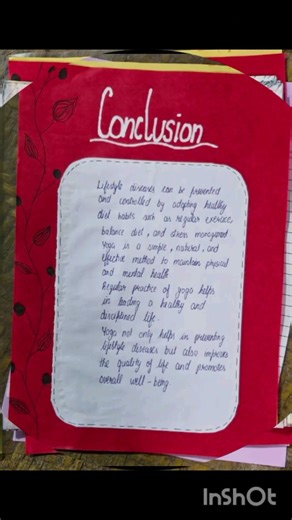 Conclusion
Lifestyle diseases can be prevented
and controlled by adopting healthy
diet habits such as regular exercise
balance diet, and stress managment
Yoga is a simple, natural, and
effective method to maintain physical
and mental health
Regular practice of yoga helps
in leading a healthy and
disciplined life.
Yoga not only helps in preventing
lifestyle diseases but also improves
the quality of life and promotes
overall well-being.
InShOt